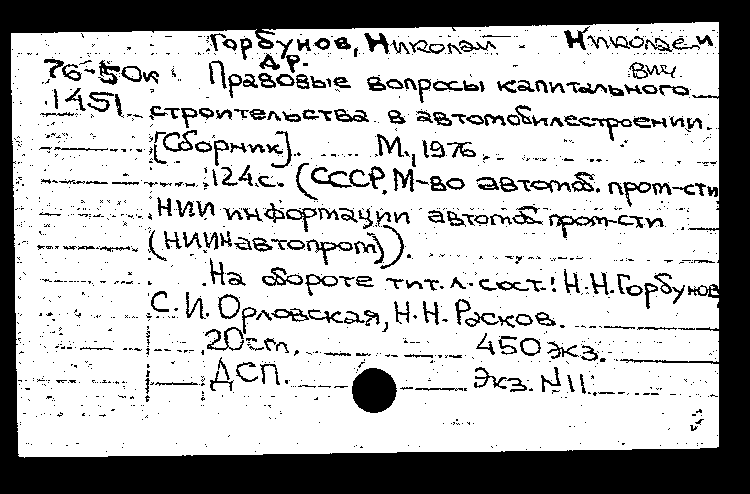 Горбунов, Николай Николаевич
др.
76-50к Правовые вопросы капитального
1451 строительства в автомобилестроении.
[Сборник]. М., 1976.
124с. (СССР, М-во автомоб. пром-сти
НИИ информации автомоб пром-сти
(НИИНавтопром)).
На обороте тит. л. сост.: Н.Н.Горбунов
С.И. Орловская, Н.Н. Расков.
20cm. 450 экз.
ДСП. Экз. N11.